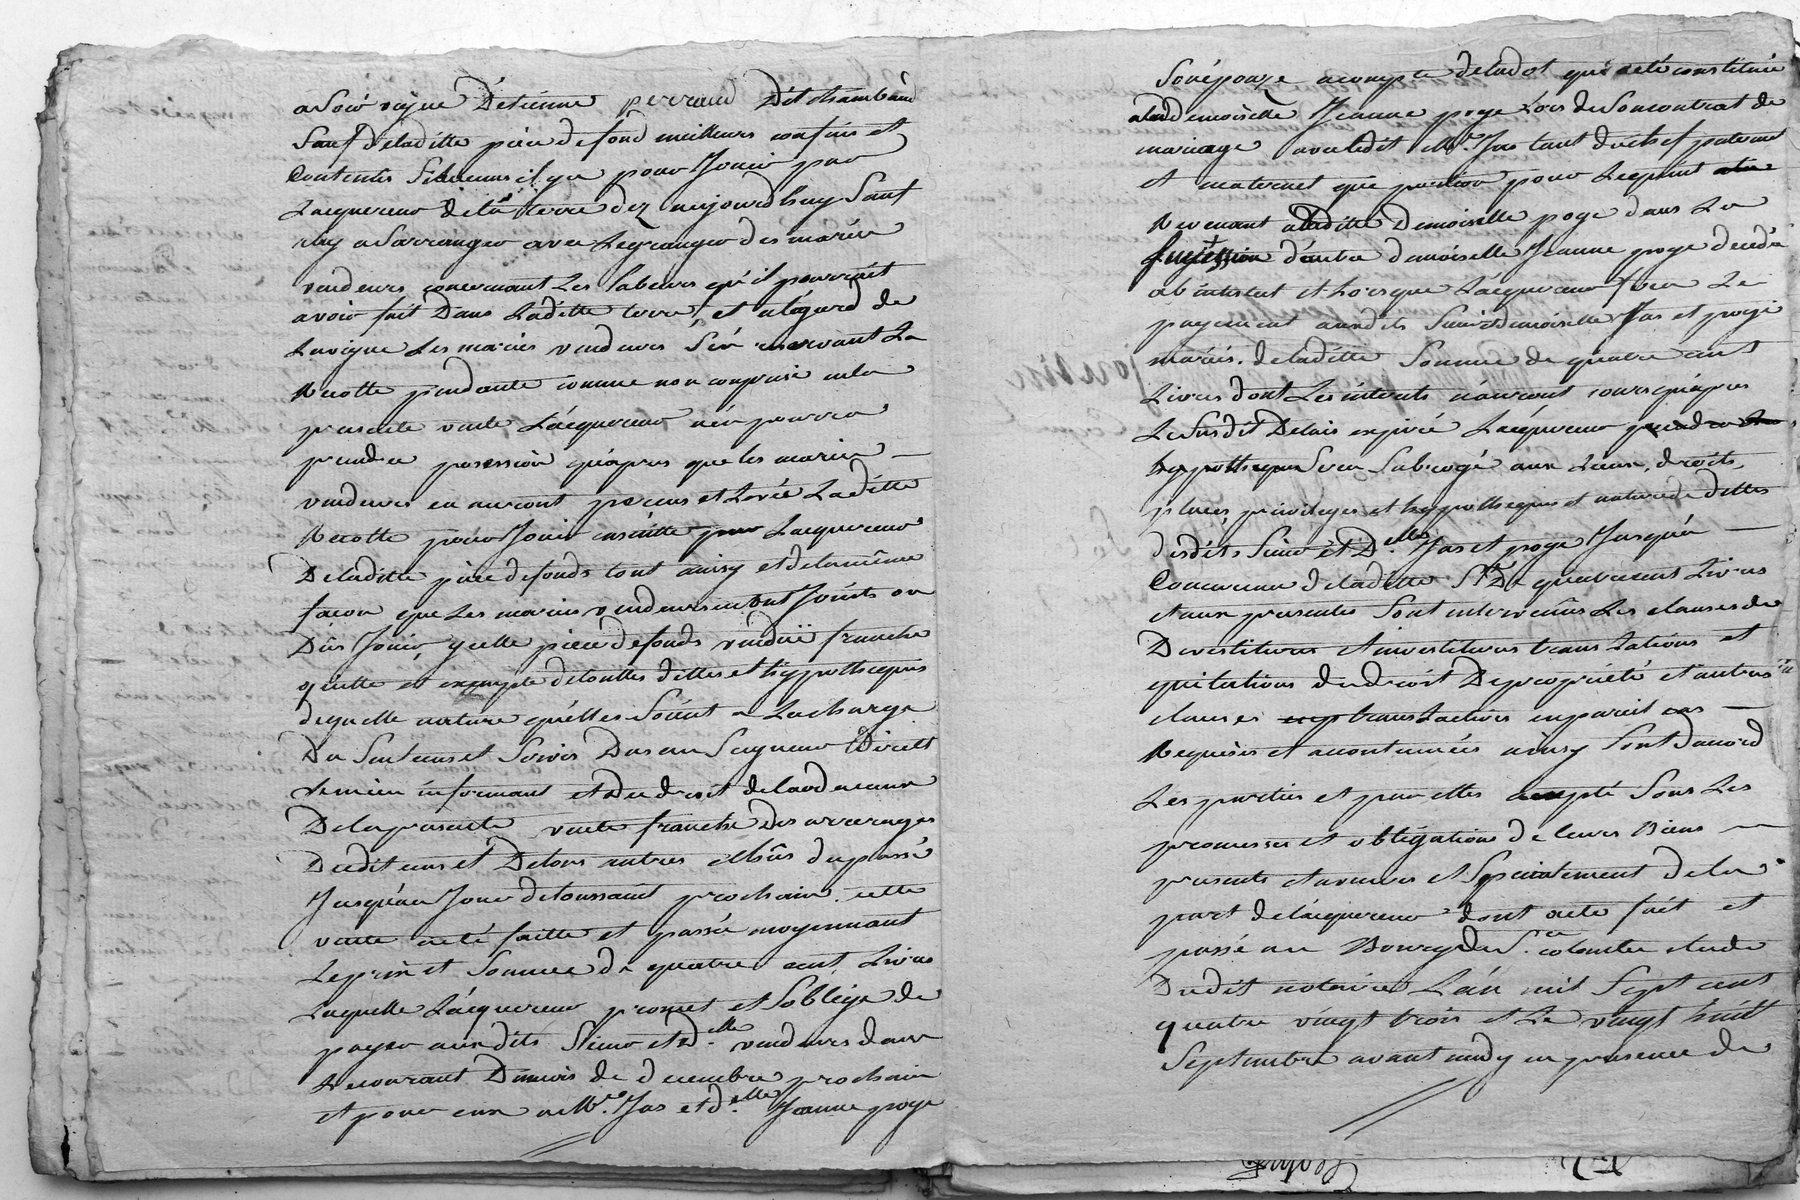 a soir vigne d'etienne perraud dit chambaud
sauf de laditte piece de fond meilleurs confins et
contenus si aucuns il y a pour jouir par
lacquereur de la terre dez aujourdhuy sauf
a luy a sarranger avec le granger des mariés
vendeurs concernant les labeurs qu'il pourroit
avoir fait dans laditte terre, et a legard de
la vigne les mariés vendeurs s'en reservant la
recolte pendante comme non comprise en la
presente vente l'acquereur n'en pourra
prendre possession qu'apres que les mariés
vendeurs en auront percus et levée laditte
recolte pour jouir ensuitte par lacquereur
de laditte piece de fonds tout ainsy et de la même
facon que les mariés vendeurs en ont jouits ou
dûs jouir, ycelle piece de fonds venduë franche
quitte et exempte de touttes dettes et hypotheques
de quelle nature qu'elles soient a la charge
du seul cens et servis dus au seigneur direct
le mieu informant et du droit de laods
de la presente vente franche des arrerages
dudit cens et de tous autres du passé
jusqu'au jour de toussaint prochain. cette
vente a été faitte et passée moyennant
le prix et somme de quatre cent livres
laquelle l'acquereur promet et s'oblige de
payer auxdits sieur et d.elle vendeurs dans
le courant du mois de decembre prochain
et pour eux a M.e Jas et d.elle Jeanne poge
son épouze a compte de la dot qui a eté constituée
a lad demoiselle Jeanne poge lors de son contrat de
mariage avec ledit M.e Jas tant du chef paternel
et maternel que portion pour
revenant a laditte demoiselle poge dans la
succession d'autre demoiselle Jeanne poge decedée
ab intestat et lorsque l'acquereur fera le
payement auxdits sieur et demoiselle Jas et poge
mariés de laditte somme de quatre cent
livres dont les interets n'auront cours qu'apres
le susdit delais expiré l'acquereur prendra
hypotheque sera subrogé aux lieux, droits,
places, privileges et hypotheques et nature de dettes
desdits sieur et D.elle Jas et poge jusqu'a
concurrence de laditte S.e de quatre cent livres
et aux presentes sont intervenûs les clauses de
devestitures et investitures translations et
quitations du droit de proprieté et autres
clauses translatives en pareil cas
requises et accoutumées ainsy sont d'accord
les parties et par elles accepté sous les
promesses et obligation de leurs biens
presents et avenir et specialement de la
part de l'acquereur dont acte fait et
passé au bourg de S.te colombe etude
dudit notaire l'an mil sept cent
quatre vingt trois et le vingt huit
septembre avant midy en presence de